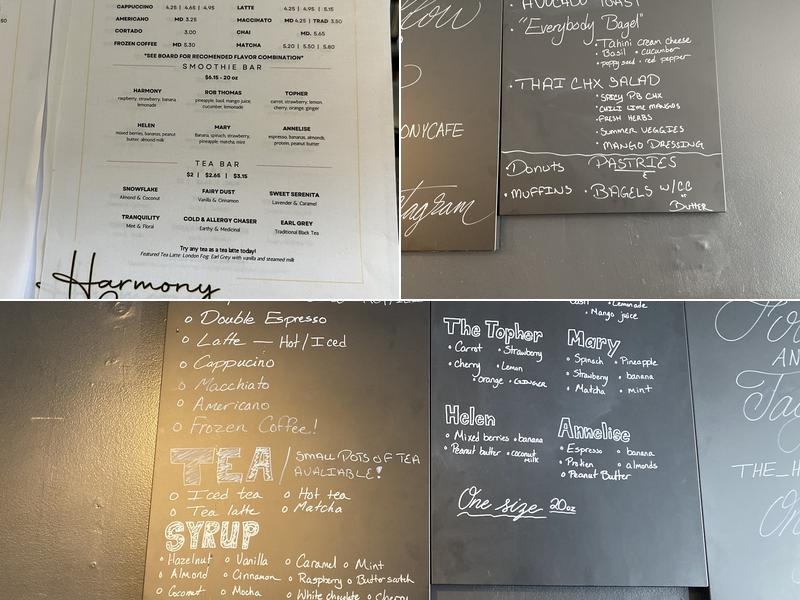 CAPPUCCINO 4.25 | 4.65 | 4.95 LATTE 4.25 | 4.95 | 5.15
AMERICANO MD 3.25 MACCHIATO MD 4.25 | TRAD 3.50
CORTADO 3.00 CHAI MD. 5.65
FROZEN COFFEE MD 5.30 MATCHA 5.20 | 5.50 | 5.80
*SEE BOARD FOR RECOMENDED FLAVOR COMBINATION*
SMOOTHIE BAR
$6.15 - 20 oz
HARMONY ROB THOMAS TOPHER
raspberry, strawberry, banana pineapple, basil, mango juice, carrot, strawberry, lemon,
lemonade cucumber, lemonade cherry, orange, ginger
HELEN MARY ANNELISE
mixed berries, bananas, peanut Banana, spinach, strawberry, espresso, bananas, almonds,
butter, almond milk pineapple, matcha, mint protein, peanut butter
TEA BAR
$2 | $2.65 | $3.15
SNOWFLAKE FAIRY DUST SWEET SERENITA
Almond & Coconut Vanilla & Cinnamon Lavender & Caramel
TRANQUILITY COLD & ALLERGY CHASER EARL GREY
Mint & Floral Earthy & Medicinal Traditional Black Tea
Try any tea as a tea latte today!
Featured Tea Latte: London Fog: Earl Grey with vanilla and steamed milk
Harmony
ONYCAFE
tagram
AVOCADO TOAST
• "Everybody Bagel"
• Tahini cream cheese
• Basil • cucumber
• poppy seed • red pepper
• THAI CHX SALAD
• SPICY PB CHX
• CHILI LIME MANGOS
• FRESH HERBS
• SUMMER VEGGIES
• MANGO DRESSING
• DONUTS PASTRIES
• MUFFINS • BAGELS W/CC
or
Butter
o Double Espresso
o Latte — Hot/Iced
o Cappucino
o Macchiato
o Americano
o Frozen Coffee!
TEA / SMALL POTS OF TEA
AVALIABLE!
o Iced tea o Hot tea
o Tea latte o Matcha
SYRUP
• Hazelnut o Vanilla o Caramel o Mint
• Almond o Cinnamon o Raspberry o Butterscotch
• Coconut o Mocha o White chocolate o Cherry
• Lemonade
• Mango juice
The Topher
• Carrot • Strawberry
• cherry • Lemon
• orange • GINGER
Mary
• Spinach • Pineapple
• Strawberry • banana
• Matcha • mint
Helen
• Mixed berries • banana
• Peanut butter • coconut
milk
Annelise
• Espresso • banana
• Protien • almonds
• Peanut Butter
One size 20oz
AN
THE_H